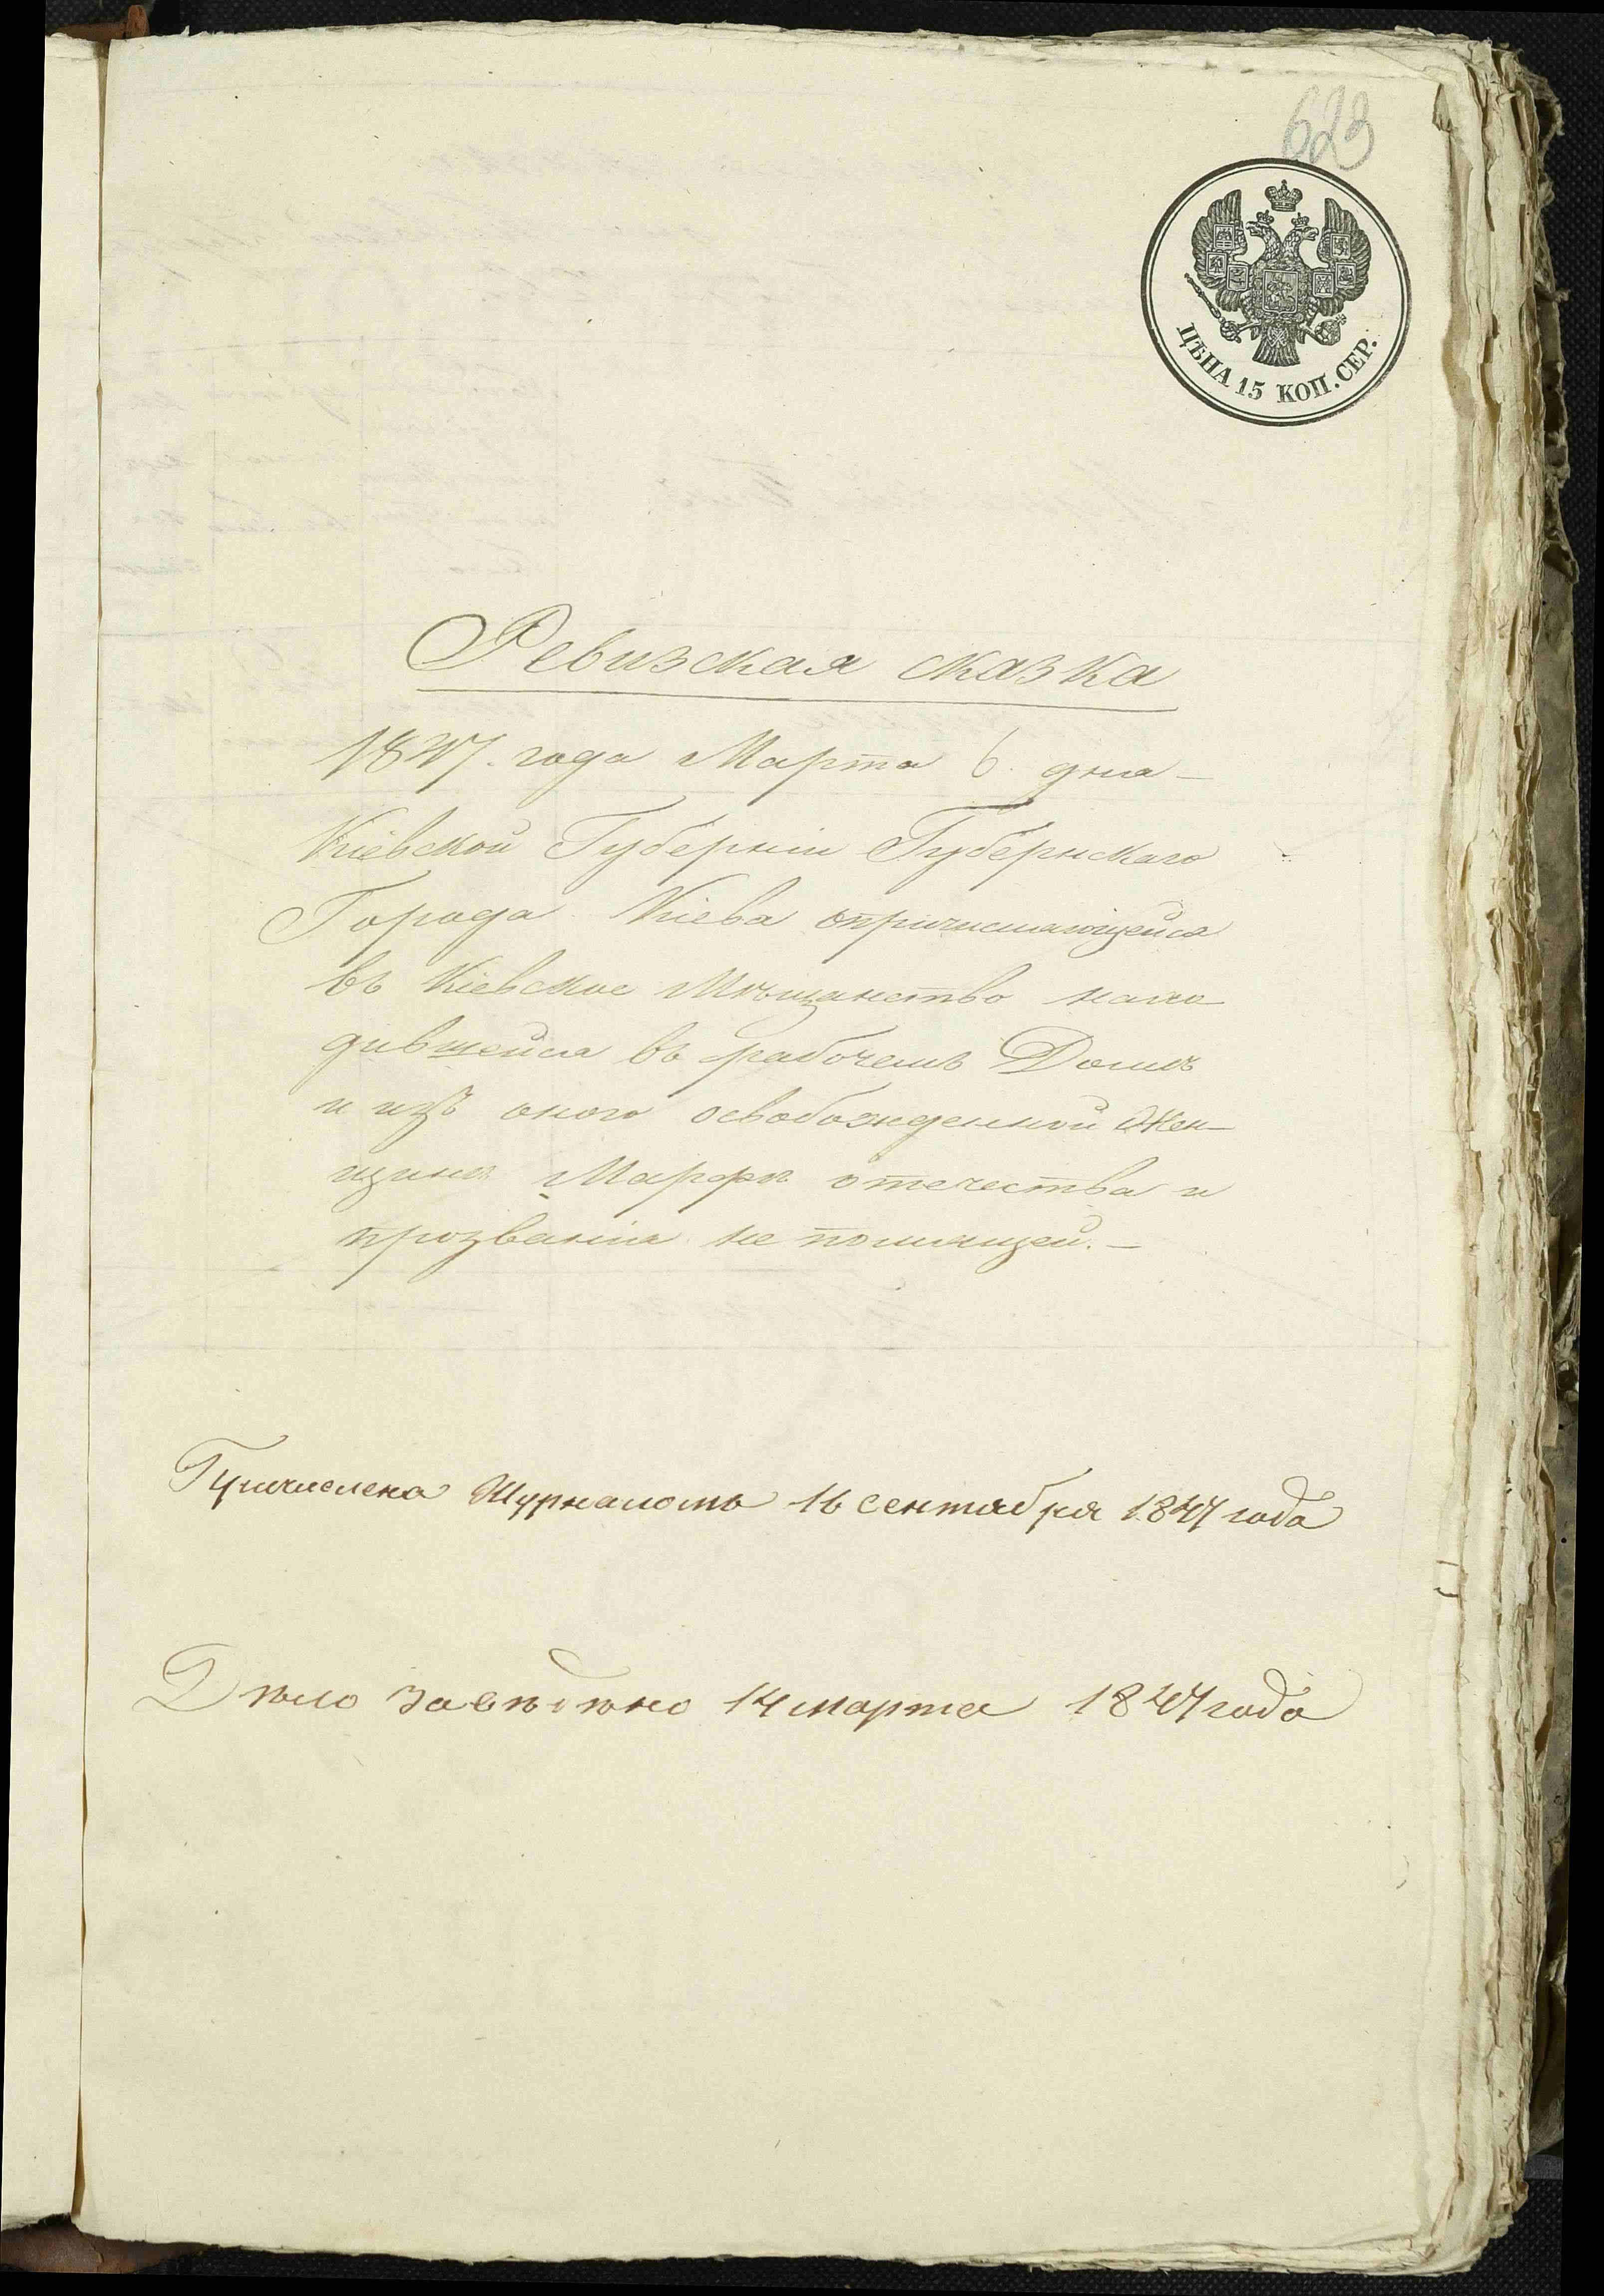 623
ЦѢНА 15 КОП. СЕР.
Ревизская сказка
1847. года Марта 6. дня –
Кіевской Губерніи Губернскаго
Города Кіева опричисляющейся
въ Кіевское Мѣщанство нахо–
дившейся въ рабочемъ Домѣ
и изъ оного освобожденной Жен–
щинѣ Марфѣ отечества и
прозванія не помнящей. –
Причислена Журналомъ 16 сентября 1847 года
Дѣло завѣдѣно 14 марта 1847 года